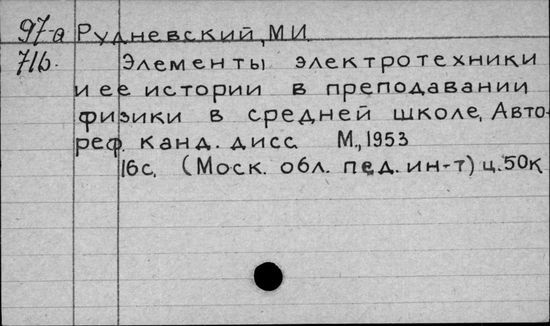 97-а Рудневский, М.И.
71б. Элементы электротехники
и ее истории в преподавании
физики в средней школе. Авто-
реф. канд. дисс. М., 1953
16с. (Моск. обл. пед. ин-т) ц. 50к